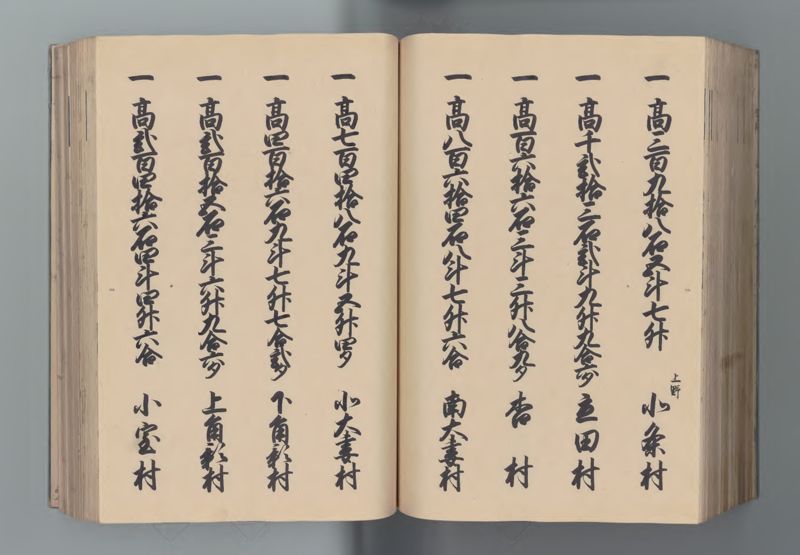 一 高三百九拾八石五斗七升 上野 北条村
一 高千弐拾三石弐斗九升九合六夕 立田村
一 高百六拾六石三斗三升八合九夕 杏村
一 高八百六拾四石八斗七升六合 南大妻村
一 高七百四拾八石九斗五升四夕 北大妻村
一 高四百拾六石九斗七升七合弐夕 下角影村
一 高弐百拾五石三斗六升九合六夕 上角影村
一 高弐百四拾六石四斗四升六合 小室村